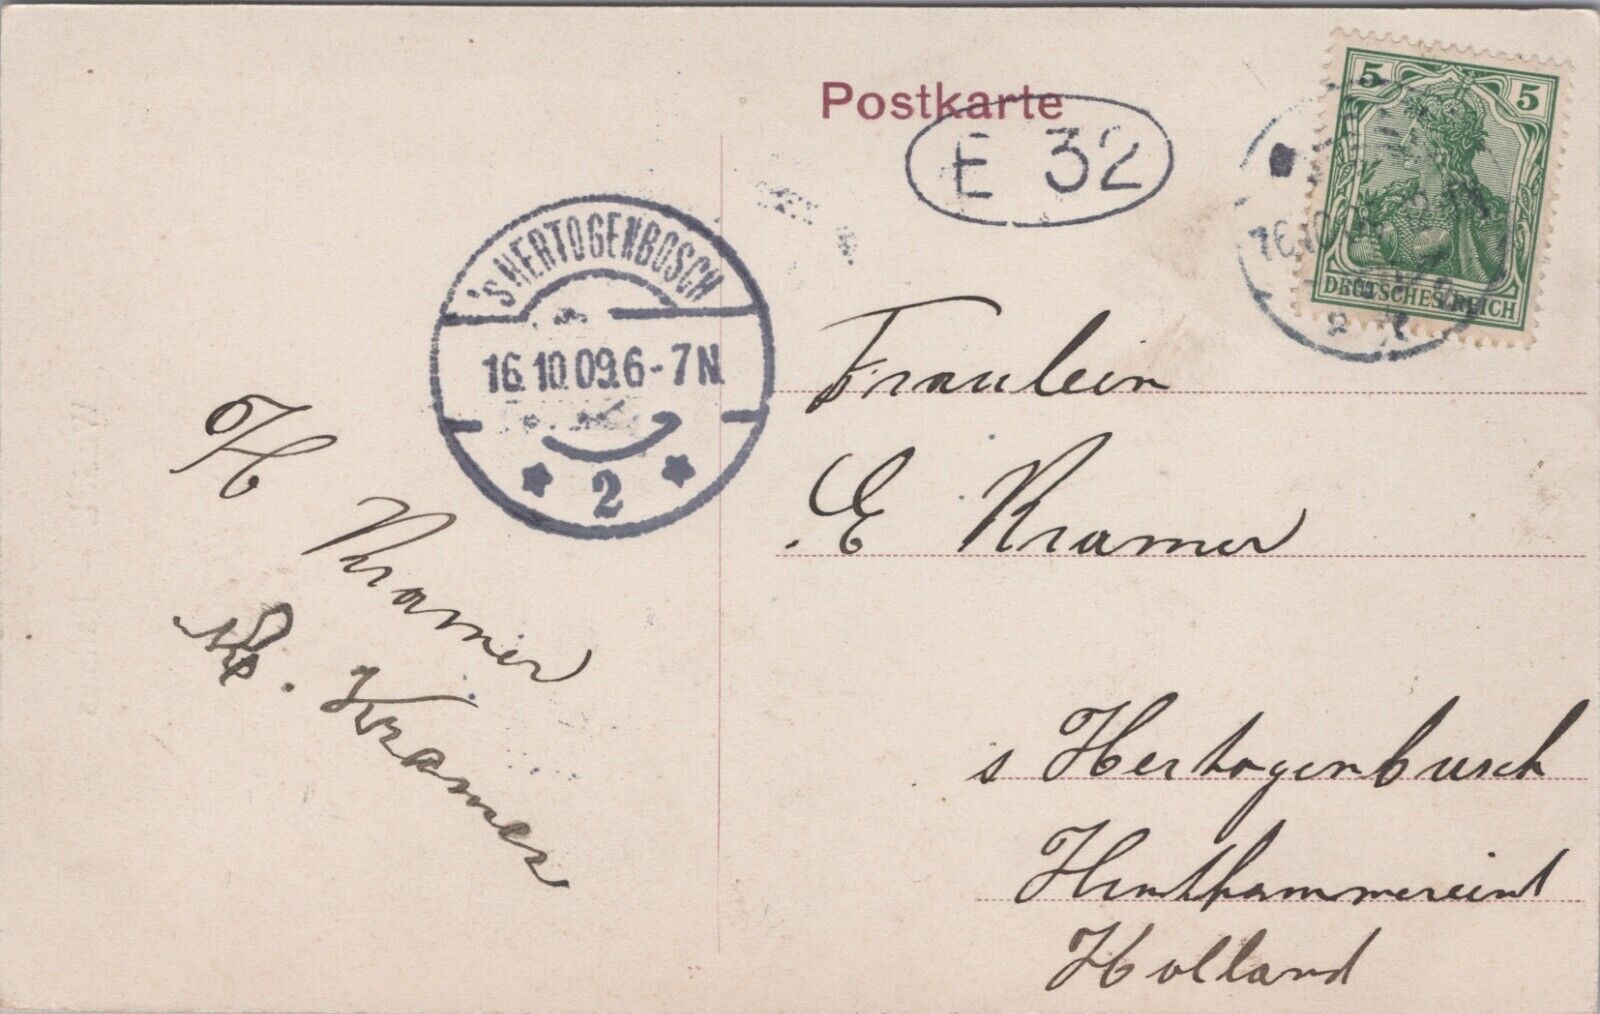 Postkarte
E 32
5 5
DEUTSCHES REICH
'S HERTOGENBOSCH
16.10.09.6-7N.
2
Fraulein
E Kramer
s Hertogenbusch
Hinthammereint
Holland
H Kramer
Kramer